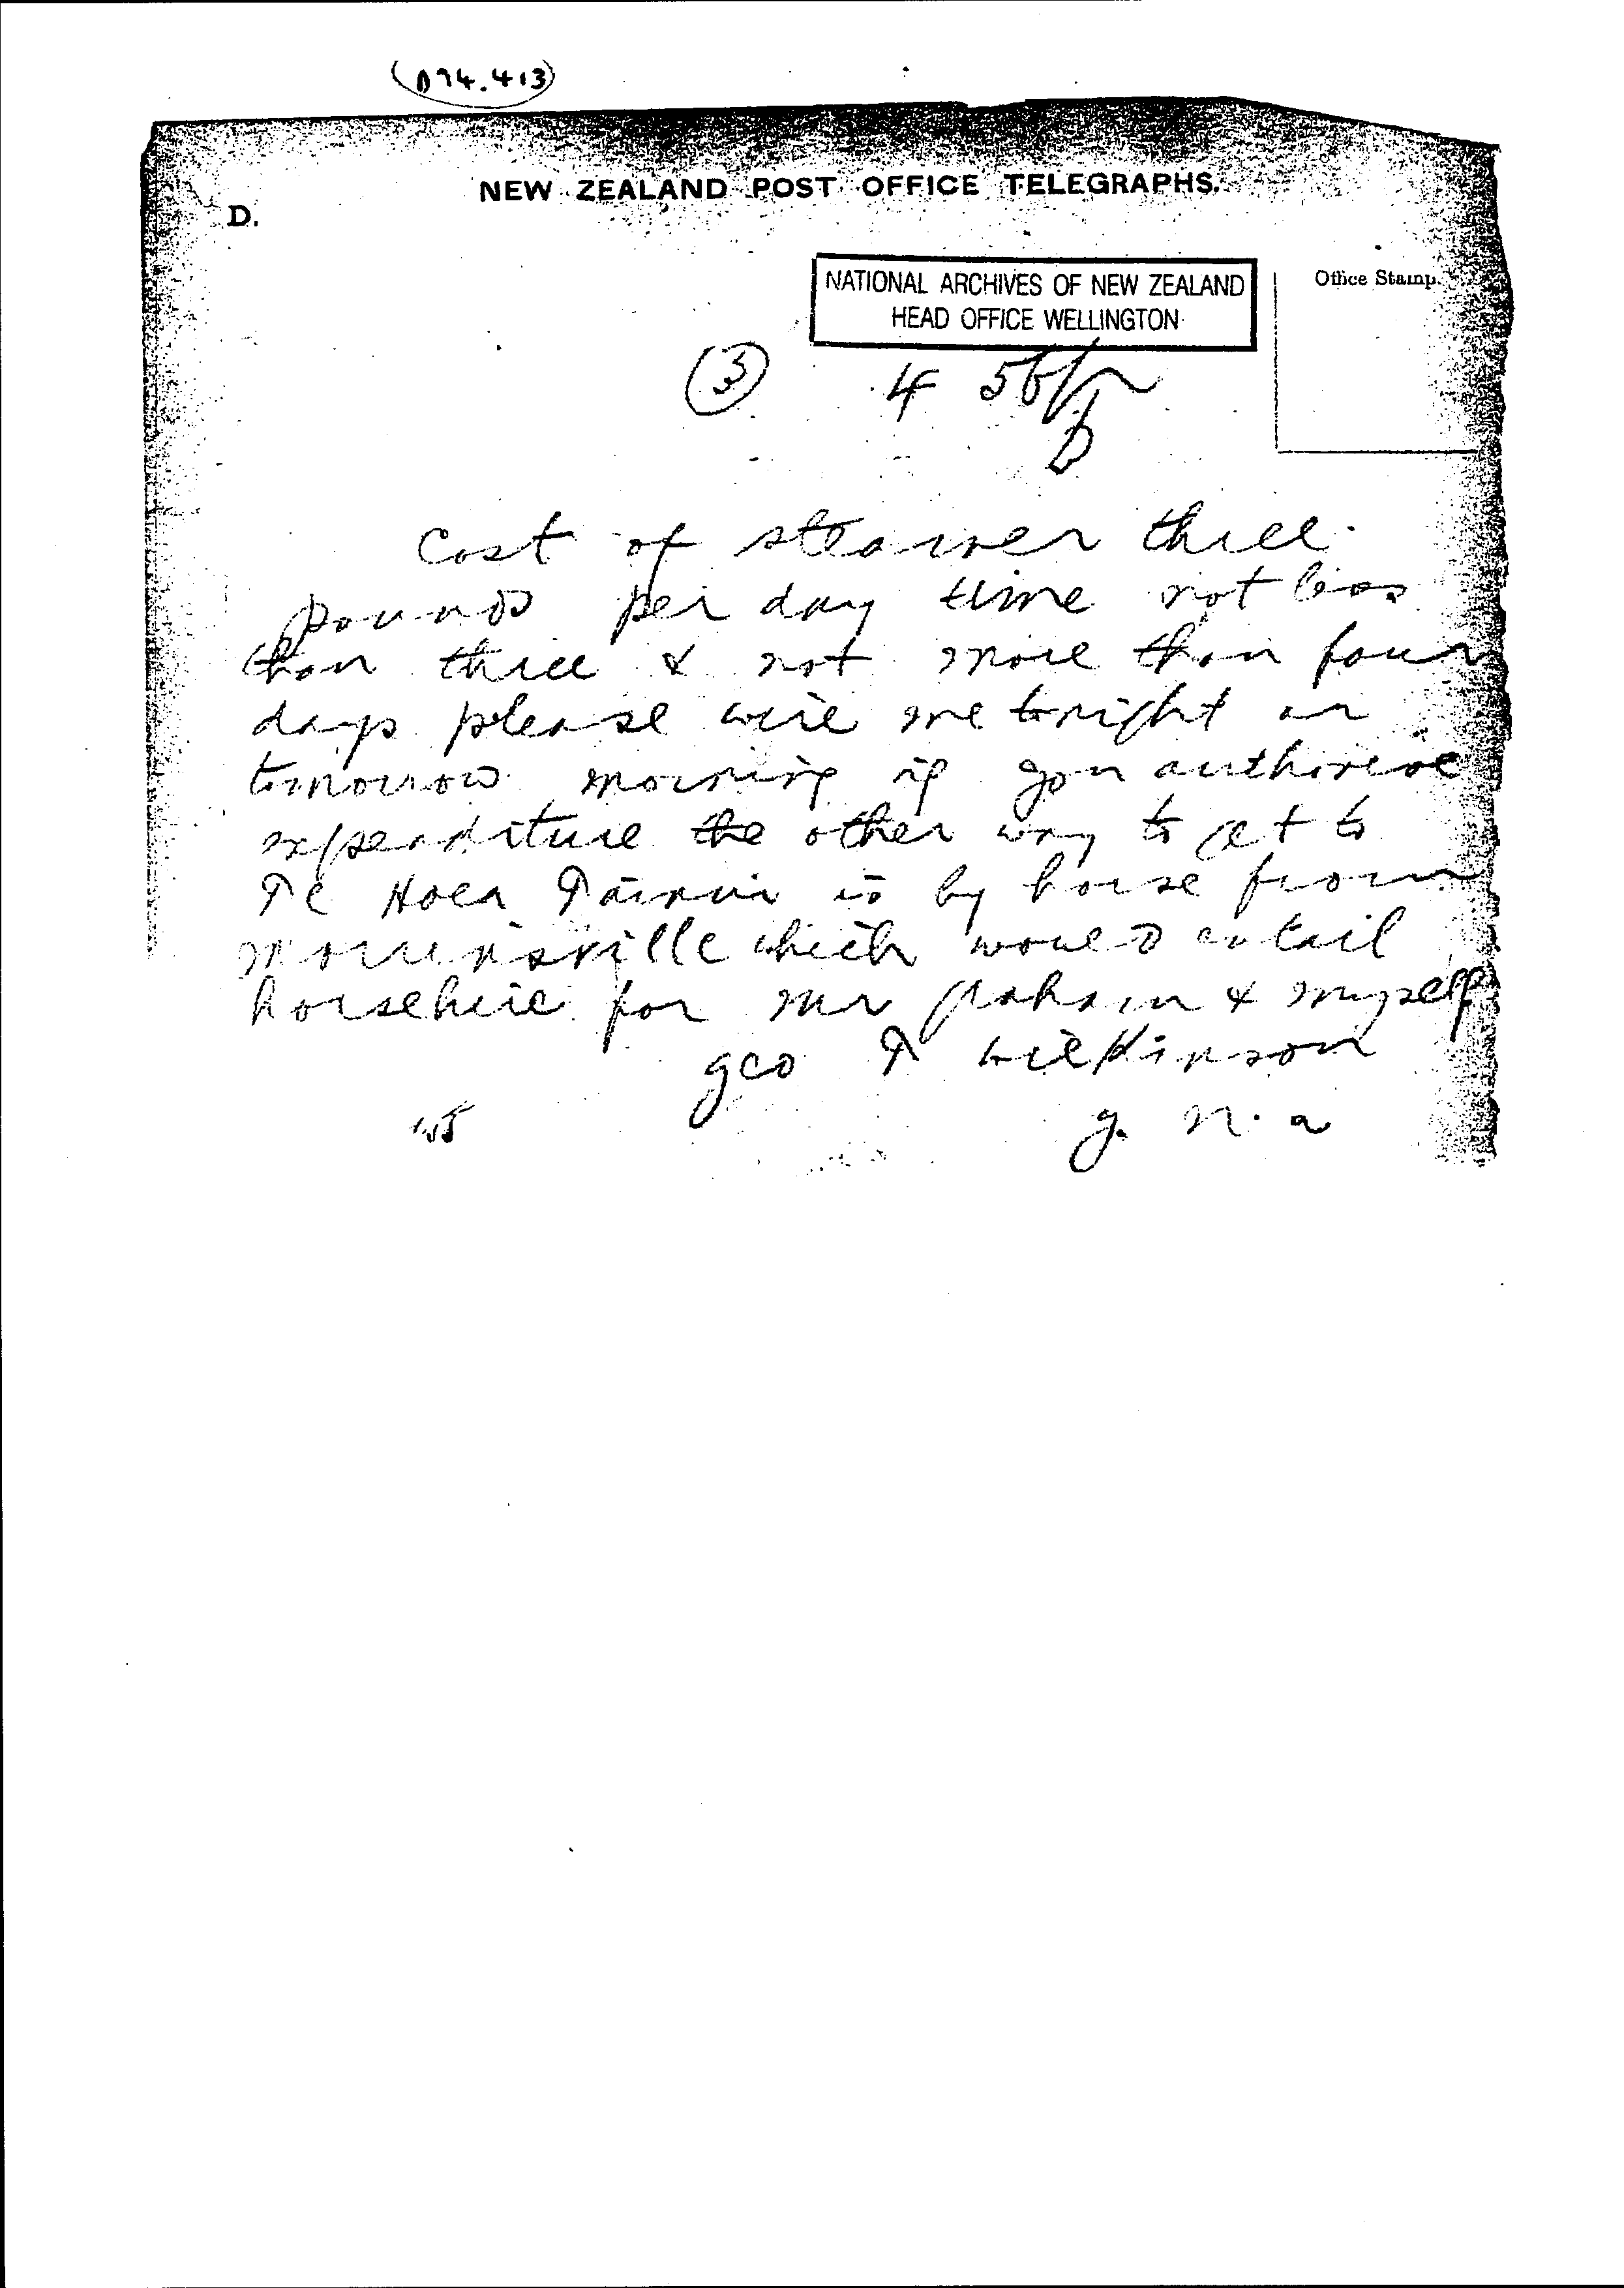 (D74.413)
NEW ZEALAND POST OFFICE TELEGRAPHS.
D.
NATIONAL ARCHIVES OF NEW ZEALAND
HEAD OFFICE WELLINGTON
Office Stamp.
3
4 56
Cost of steamer three
pounds per day time not less
than three & not more than four
days please wire me tonight or
tomorrow morning if you authorise
expenditure the other way to get to
Te Hoea Tainui is by horse from
morrinsville which would entail
horsehire for mr graham & myself
geo T wilkinson
g. n. a